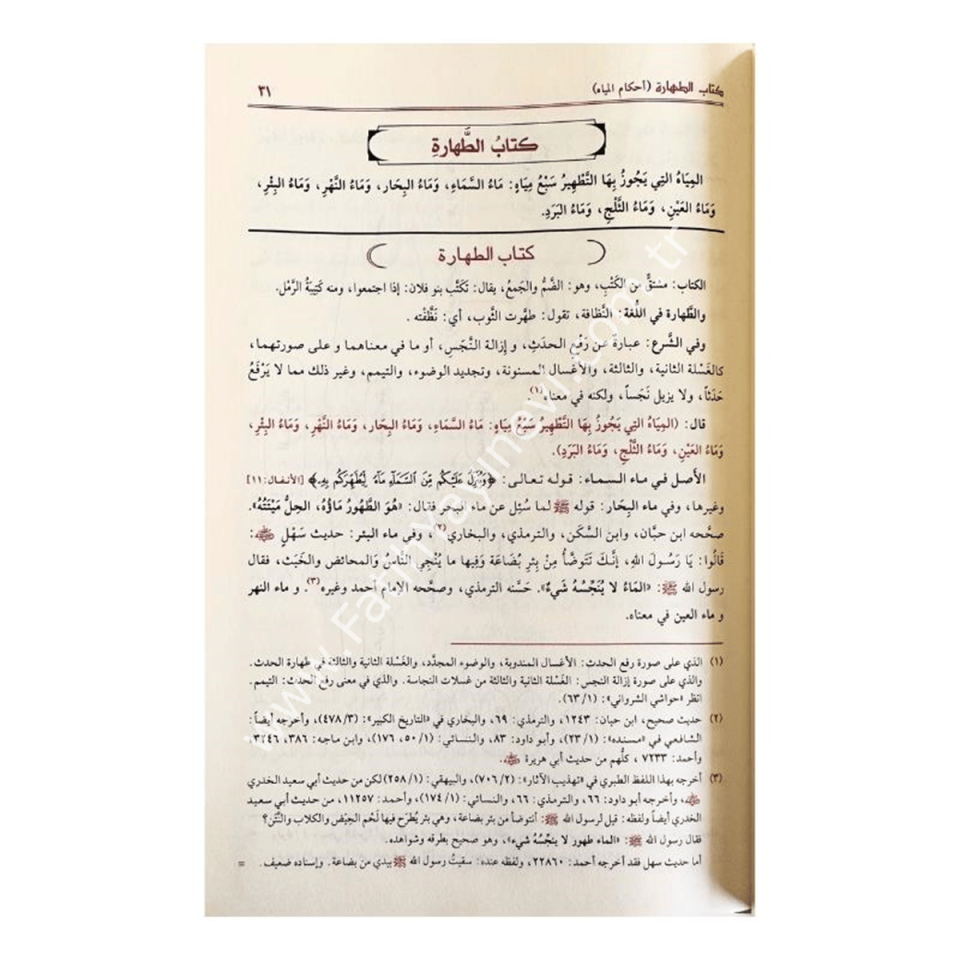 كتاب الطهارة (أحكام المياه) ٣١
كتابُ الطَّهارةِ
المِيَاهُ التِي يَجُوزُ بِهَا التَّطْهِيرُ سَبْعُ مِيَاهٍ: مَاءُ السَّمَاءِ، وَمَاءُ البِحَار، وَمَاءُ النَّهْرِ، وَمَاءُ البِئْرِ،
وَمَاءُ العَيْنِ، وَمَاءُ الثَّلْجِ، وَمَاءُ البَرَدِ.
كتاب الطهارة
الكتاب: مشتقٌّ من الكَتْبِ، وهو: الضَّمُّ والجَمعُ، يقال: تكَتَّب بنو فلان: إذا اجتمعوا، ومنه كَتِيبَةُ الرَّمْل.
والطَّهارة في اللُّغة: النَّظافة، تقول: طهَّرت الثَّوب، أي: نَظَّفْته .
وفي الشَّرع: عبارة عن رَفْعِ الحدَثِ، و إزالة النَّجَسِ، أو ما في معناهما و على صورتهما،
كالغَسْلة الثانية، والثالثة، والأغسال المسنونة، وتجديد الوضوء، والتيمم، وغير ذلك مما لا يَرْفَعُ
حَدَثاً، ولا يزيل نَجَساً، ولكنه في معناه(١).
قال: (المِيَاهُ التِي يَجُوزُ بِهَا التَّطْهِيرُ سَبْعُ مِيَاهٍ: مَاءُ السَّمَاءِ، وَمَاءُ البِحَار، وَمَاءُ النَّهْرِ، وَمَاءُ البِئْرِ،
وَمَاءُ العَيْنِ، وَمَاءُ الثَّلْجِ، وَمَاءُ البَرَدِ).
الأصل في ماء السماء: قوله تعالى: ﴿وَيُنَزِّلُ عَلَيْكُم مِّنَ السَّمَاءِ مَاءً لِّيُطَهِّرَكُم بِهِ﴾ [الأنفال: ١١]
وغيرها، وفي ماء البِحَار: قوله ﷺ لما سُئِل عن ماء البحر فقال: «هُوَ الطَّهُورُ مَاؤُهُ، الحِلُّ مَيْتَتُهُ».
صحَّحه ابن حبَّان، وابن السَّكَن، والترمذي، والبخاري(٢)، وفي ماء البئر: حديث سَهْلٍ رضي الله عنه:
قَالُوا: يَا رَسُولَ اللهِ، إِنَّكَ تَتَوَضَّأُ مِنْ بِئرِ بُضَاعَة وَفِيها ما يُنْجِي النَّاسُ والمحائض والخَبَث، فقال
رسول الله ﷺ: «المَاءُ لا يُنَجِّسُهُ شَيءٌ». حَسَّنه الترمذي، وصحَّحه الإمام أحمد وغيره(٣). و ماء النهر
و ماء العين في معناه.
(١) الذي على صورة رفع الحدث: الأغسال المندوبة، والوضوء المجدَّد، والغَسْلة الثانية والثالثة في طهارة الحدث.
والذي على صورة إزالة النجس: الغَسْلة الثانية والثالثة من غسلات النجاسة. والذي في معنى رفع الحدث: التيمم.
انظر «حواشي الشرواني»: (١/ ٦٣).
(٢) حديث صحيح، ابن حبان: ١٢٤٣، والترمذي: ٦٩، والبخاري في «التاريخ الكبير»: (٣/ ٤٧٨)، وأخرجه أيضاً:
الشافعي في «مسنده»: (١/ ٢٣)، وأبو داود: ٨٣، والنسائي: (١/ ٥٠، ١٧٦)، وابن ماجه: ٣٨٦، ٣٢٤٦،
وأحمد: ٧٢٣٣ ، كلُّهم من حديث أبي هريرة رضي الله عنه.
(٣) أخرجه بهذا اللفظ الطبري في «تهذيب الآثار»: (٢/ ٧٠٦)، والبيهقي: (١/ ٢٥٨) لكن من حديث أبي سعيد الخدري
رضي الله عنه، وأخرجه أبو داود: ٦٦، والترمذي: ٦٦، والنسائي: (١/ ١٧٤)، وأحمد: ١١٢٥٧، من حديث أبي سعيد
الخدري أيضاً ولفظه: قيل لرسول الله ﷺ: أنتوضأ من بئر بضاعة، وهي بئر يُطرَح فيها لَحْم الحِيَض والكلاب والنَّتَن؟
فقال رسول الله ﷺ: «الماء طهور لا ينجِّسُهُ شيء»، وهو صحيح بطرقه وشواهده.
أما حديث سهل فقد أخرجه أحمد: ٢٢٨٦٠، ولفظه عنده: سقيتُ رسول الله ﷺ بيدي من بضاعة. وإسناده ضعيف. =
www.Fatihyayinevi.com.tr